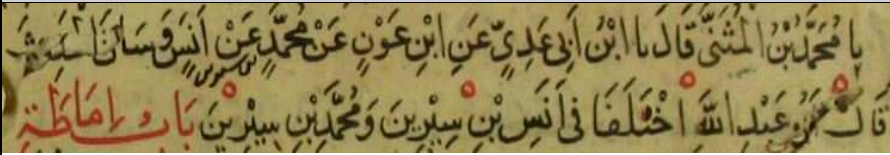 نا محمد بن المثنى قال نا ابن أبي عدي عن ابن عون عن محمد عن أنس وساق
قال عبد الله اختلفا في أنس بن سيرين ومحمد بن سيرين باب إماطة